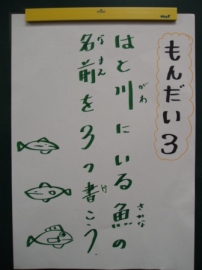 もんだい3
はと川にいる魚の
がわ
さかな
名前を3つ書こう
なまえ
か